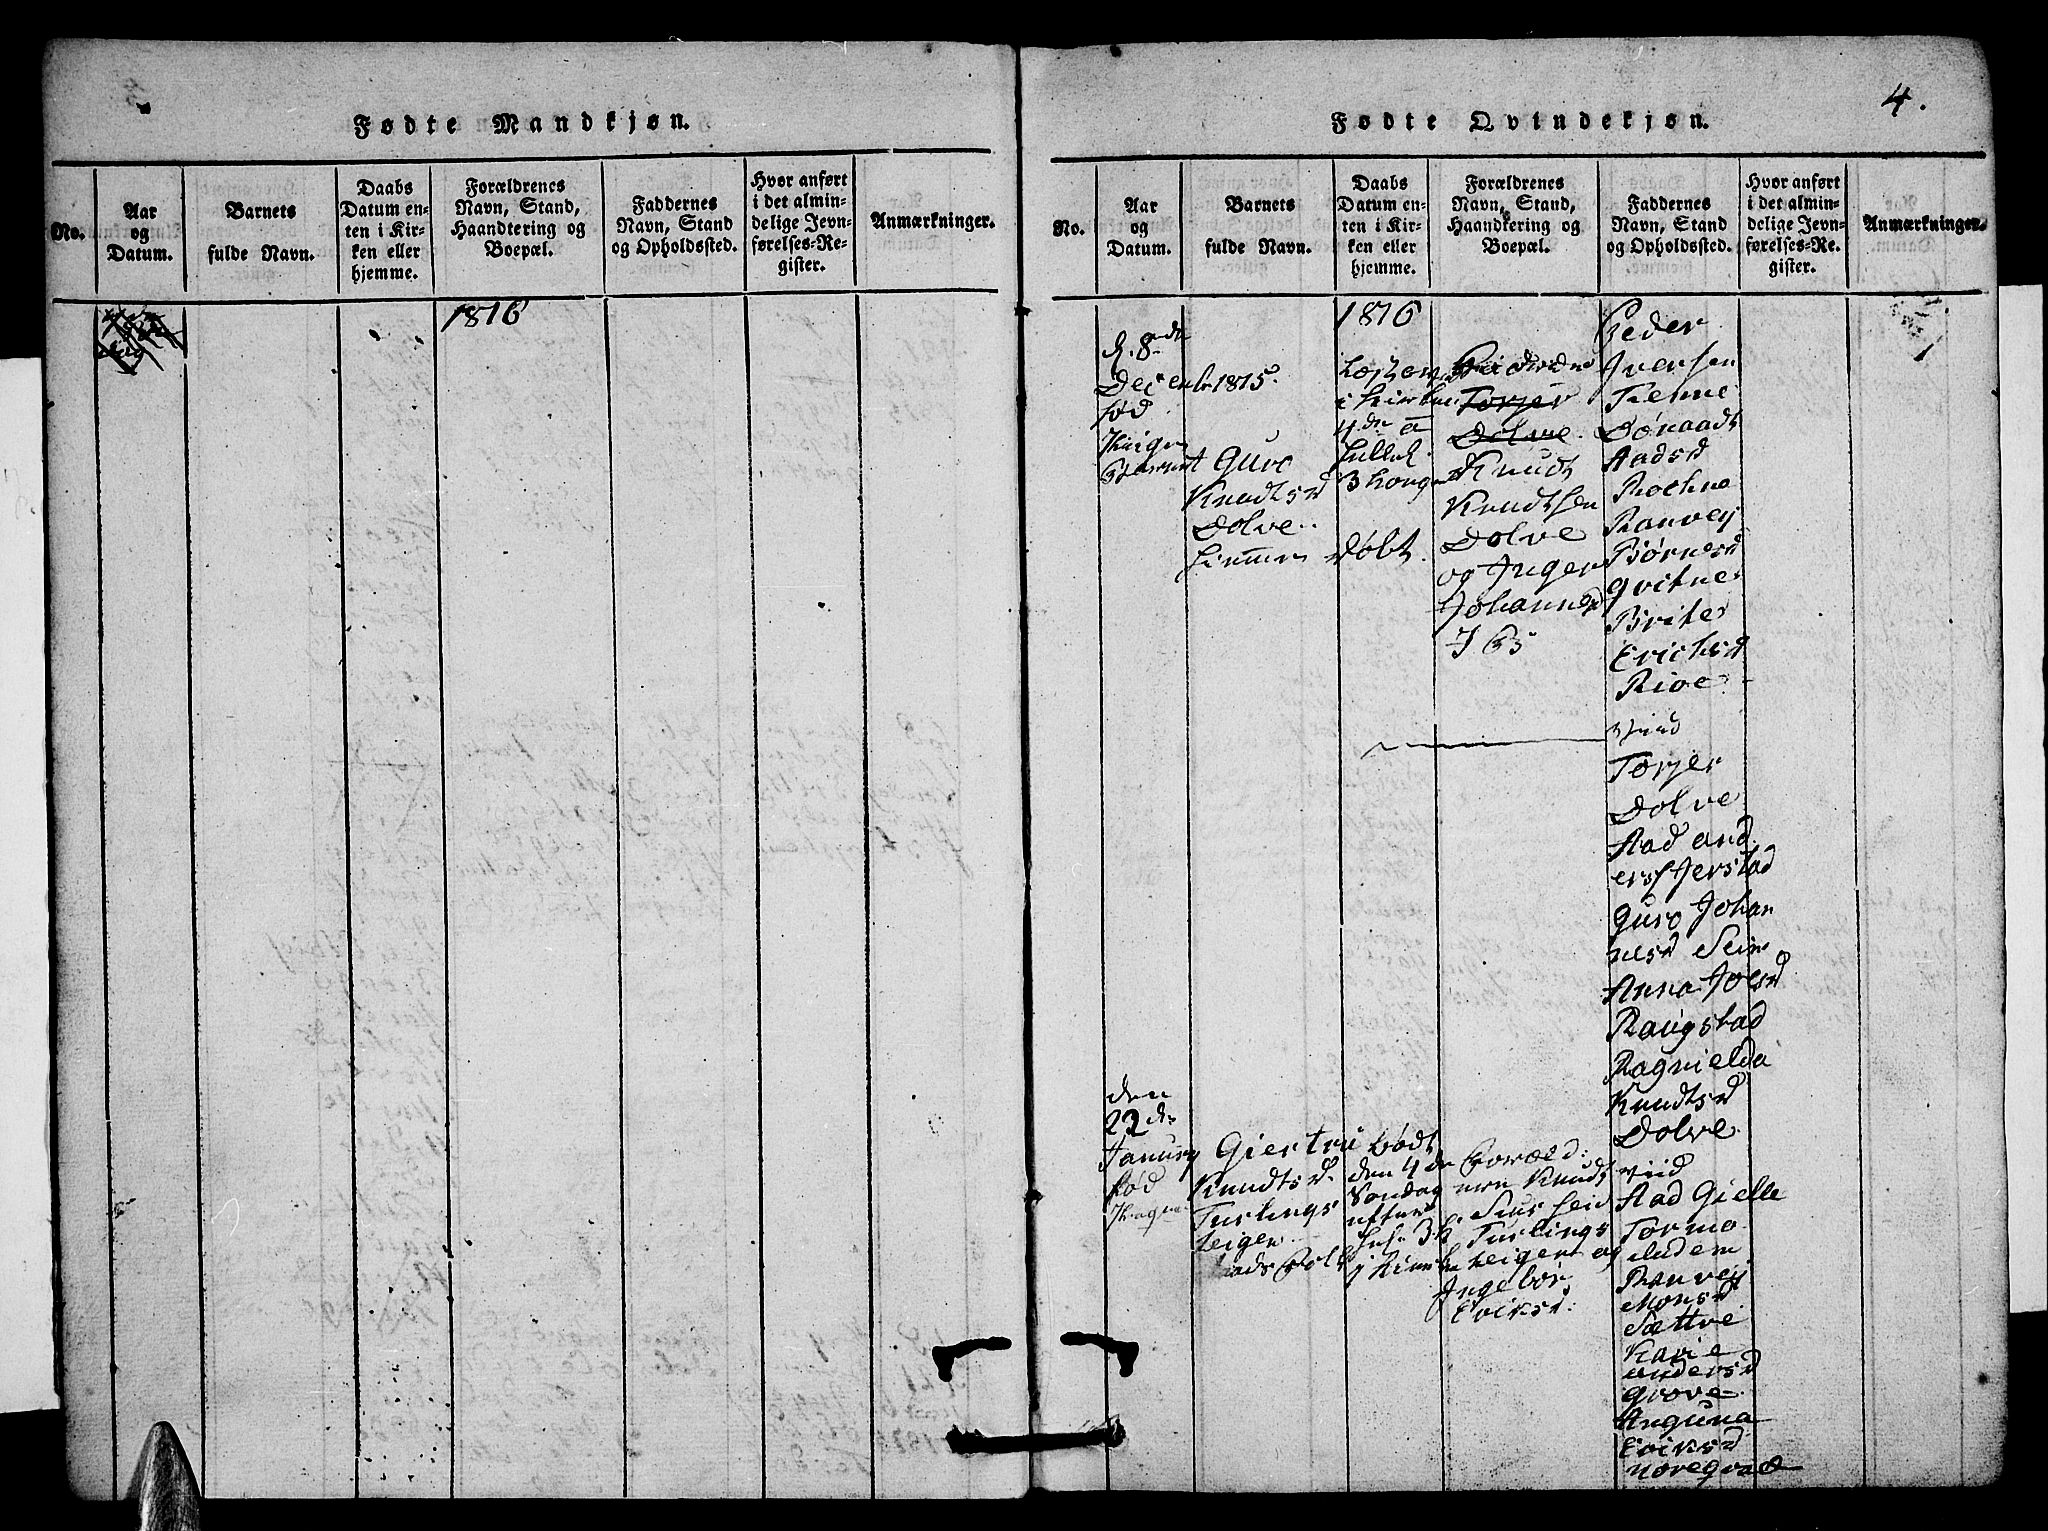 Fødte Mandkjøn.
No.
Aar
og
Datum.
Barnets
fulde Navn.
Daabs
Datum en-
ten i Kir-
ken eller
hjemme.
Forældrenes
Navn, Stand,
Haandtering og
Boepæl.
Faddernes
Navn, Stand
og Opholdssted.
Hvor anført
i det almin-
delige Jevn-
førelses-Re-
gister.
Anmærkninger.
1816
4.
Fødte Qvindekjøn.
No.
Aar
og
Datum.
Barnets
fulde Navn.
Daabs
Datum en-
ten i Kir-
ken eller
hjemme.
Forældrenes
Navn, Stand,
Haandtering og
Boepæl.
Faddernes
Navn, Stand
og Opholdssted.
Hvor anført
i det almin-
delige Jevn-
førelses-Re-
gister.
Anmærkninger.
d. 8de
Decembr 1815.
fød
Guro
Knudtsd
Dolve
1816
døbt.
Torjer
Dolve
Knudt
Knudtsen
Dolve
og Inger
Johannesd
Peder
Iversen
Aadsd
Rochne
Ranvey
Bjørnesd
Gvitne
Brite
Erichsd
Rioe
Torjer
Dolve
Aad And
ers Jerstad
Guro Johan
nesd Sein
Anna Joesd
Raugstad
Ragnielda
Knudtsd
Dolve
den
22de
January
fød
Giertru
Knudtsd
Turlings
teigen
bødt
den 4de
Søndag
efter
Foræld:
ren Knudt
Siursen
Turlings
teigen og
Ingebor
Eriksd:
Aad Gielle
Tormo
Ranvej
Monsd
Sættve
Karie
Andersd
Grove
Anguna
Eriksd